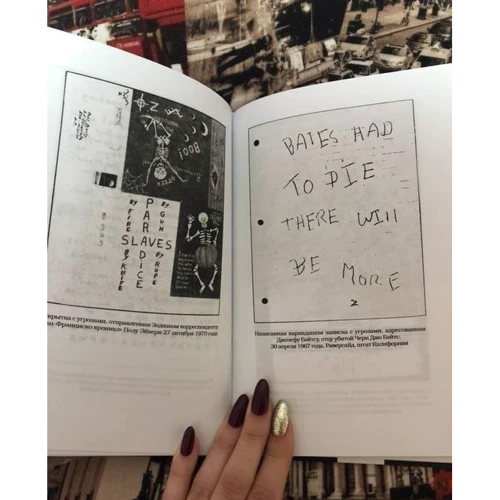 BOO!
4-TEEN
BY
FIRE
BY
GUN
PARADICE
SLAVES
BY
KNIFE
BY
ROPE
крытка с угрозами, отправленная Зодиаком корреспонденту
ан-Франциско кроникл» Полу Эйвери 27 октября 1970 года
BATES HAD
TO DIE
THERE WILL
BE MORE
Z
Написанная карандашом записка с угрозами, адресованная
Джозефу Бэйтсу, отцу убитой Чери Джо Бэйтс.
30 апреля 1967 года, Риверсайд, штат Калифорния